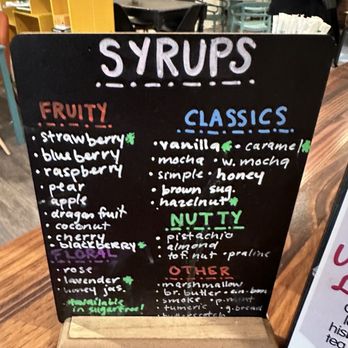 SYRUPS
FRUITY
• strawberry*
• blueberry
• raspberry
• pear
• apple
• dragon fruit
• coconut
• cherry
• blackberry*
FLORAL
• rose
• lavender*
• honey jas.
*available in sugarfree!
CLASSICS
• vanilla* • caramel*
• mocha • w. mocha
• simple • honey
• brown sug.
• hazelnut*
NUTTY
• pistachio
• almond
• tof. nut • praline
OTHER
• marshmallow
• br. butter
• smoke • p.mint
• tumeric • g.bread
• butterscotch